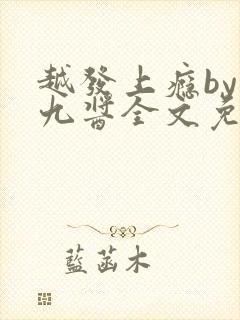 越發上癮by
九醬全文免
藍菡木